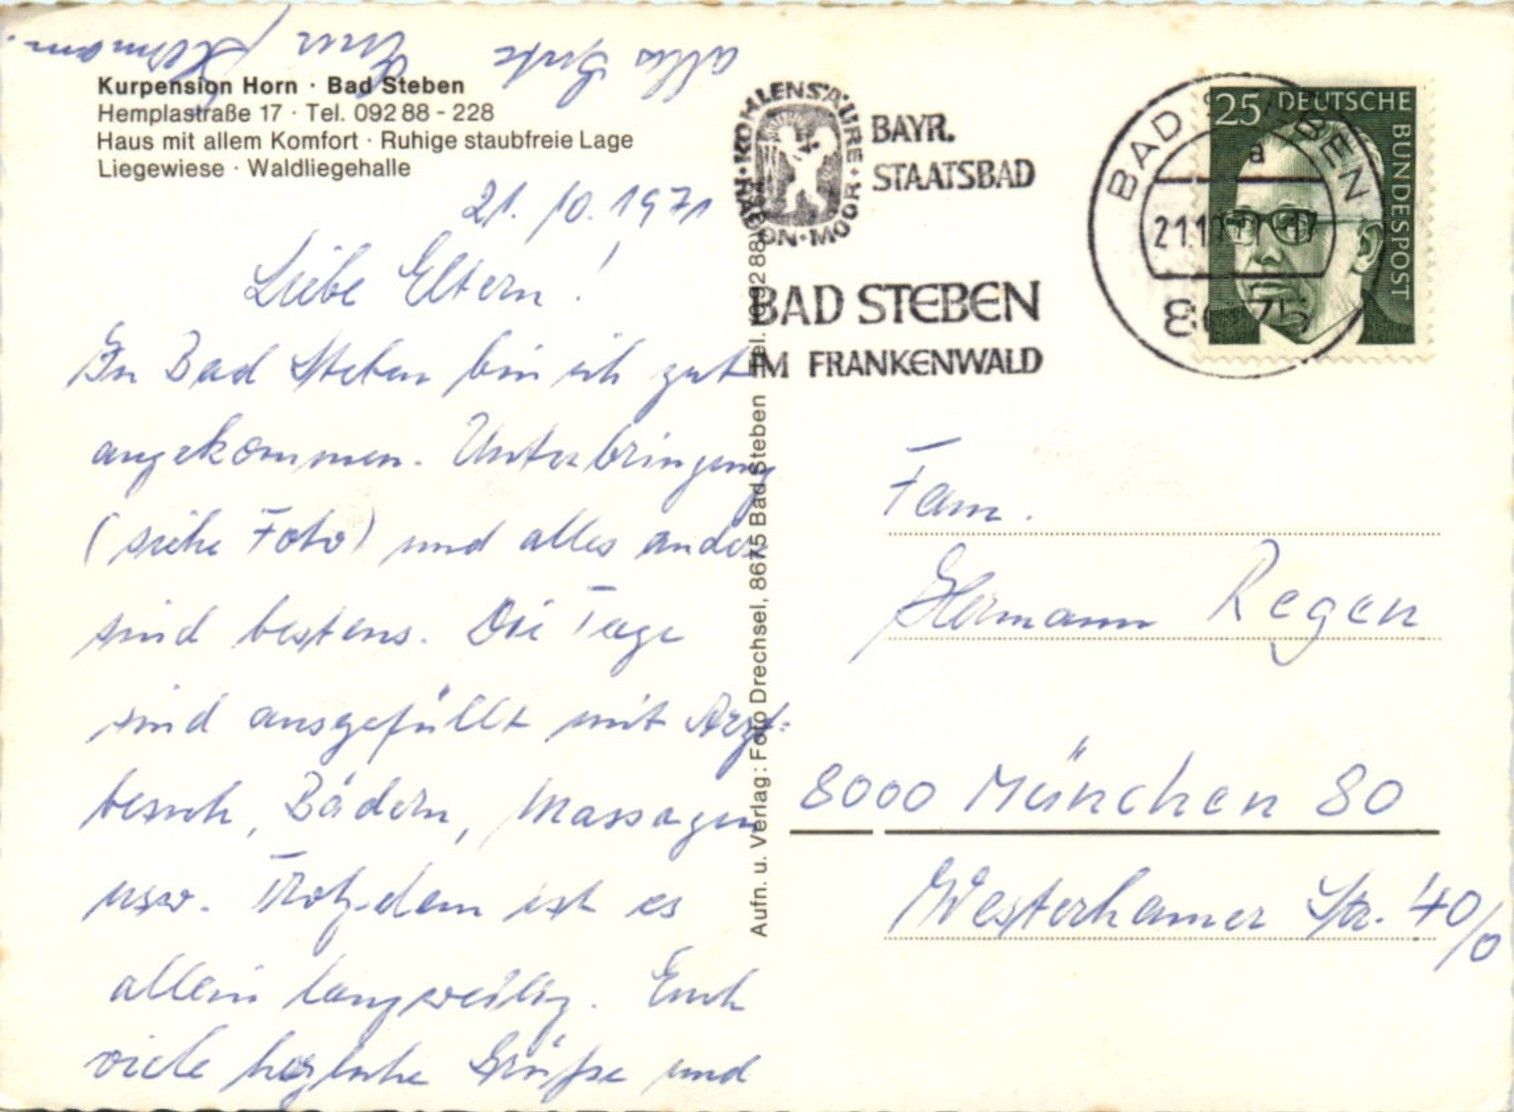 Kurpension Horn · Bad Steben
Hemplastraße 17 · Tel. 092 88 - 228
Haus mit allem Komfort · Ruhige staubfreie Lage
Liegewiese · Waldliegehalle
21. 10. 1971
Liebe Eltern!
In Bad Steben bin ich gut
angekommen. Unterbringung
(siehe Foto) und alles andere
sind bestens. Die Tage
sind ausgefüllt mit Arzt=
besuch, Bädern, Massagen
usw. Trotzdem ist es
allein langweilig. Euch
viele herzliche Grüße und
alles Gute Euer Hermann.
Aufn. u. Verlag: Foto Drechsel, 8675 Bad Steben
KOHLENSÄURE · MOOR · RADON
BAYR.
STAATSBAD
BAD STEBEN
IM FRANKENWALD
BAD STEBEN
a
8675
25 DEUTSCHE
BUNDESPOST
Fam.
Hermann Regen
8000 München 80
Westerhamer Str. 40/0